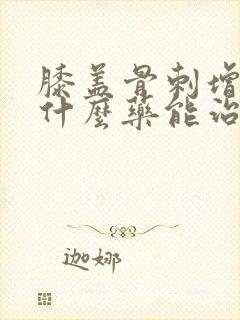 膝盖骨刺增
什麼药能治
迦娜